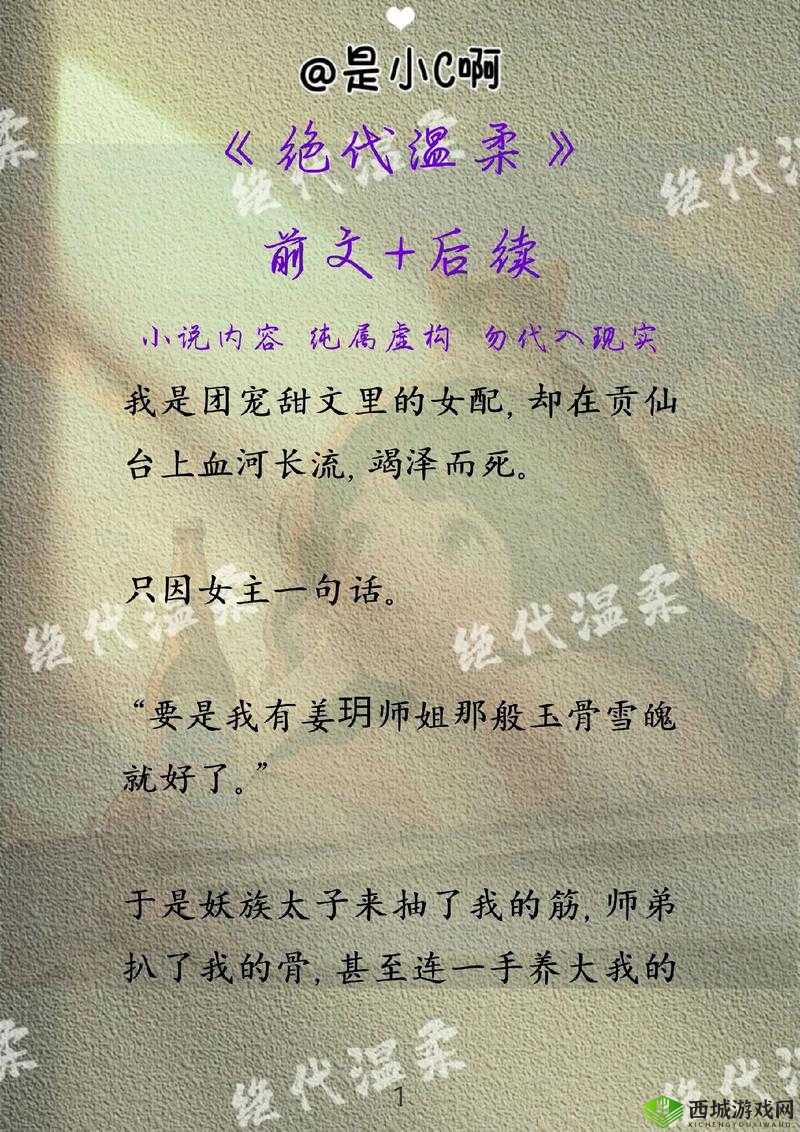 @是小C啊
《绝代温柔》
前文+后续
小说内容 纯属虚构 勿代入现实
我是团宠甜文里的女配,却在贡仙
台上血河长流,竭泽而死。
只因女主一句话。
“要是我有姜玥师姐那般玉骨雪魄
就好了。”
于是妖族太子来抽了我的筋,师弟
扒了我的骨,甚至连一手养大我的
1
绝代温柔
绝代温柔
绝代温柔
绝代温柔
绝代温柔
西城游戏网
XICHENGYOUXIWANG